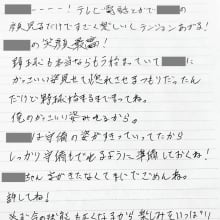 ーーーー！テレビ電話とかで の
顔見るだけですごく楽しいしテンションあがる！
の笑顔最高！
野球も本当ならもう始まっていて に
かっこいい姿見せて惚れさせるつもりだったん
だけど野球始まるまで待っててね。
俺のかっこいい姿みせるから。
は守備の姿がすきっていってたから
しっかり守備もでれるように準備しておくね！
ちゃん 字がきたなくてまじでごめんね。
許してね！
もよくなるから楽しみをいっぱい